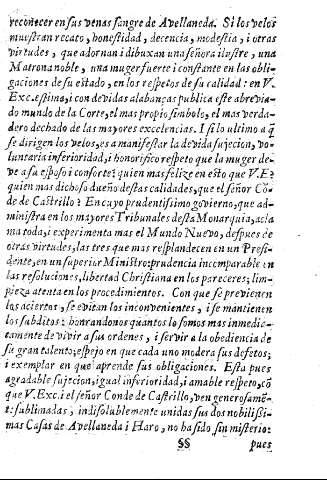 reconocer en sus venas sangre de Avellaneda. Si los velos
muestran recato, honestidad, decencia, modestia, i otras
virtudes, que adornan i dibuxan una señora ilustre, una
Matrona noble, una muger fuerte i constante en las obli-
gaciones de su estado, en los respetos de su calidad: en V.
Exc. estima, i con devidas alabanças publica este abrevia-
do mundo de la Corte, el mas propio simbolo, el mas verda-
dero dechado de las mayores excelencias. I si lo ultimo a q̃
se dirigen los velos, es a manifestar la devida sujecion, vo-
luntaria inferioridad, i honorifico respeto que la muger de-
ve a su esposo i consorte? quien mas felize en esto que V.E?
quien mas dichoso dueño destas calidades, que el señor Cõ-
de de Castrillo? En cuyo prudentisimo govierno, que ad-
ministra en los mayores Tribunales desta Monarquia, acla
ma toda, i experimenta mas el Mundo Nuevo, despues de
otras virtudes, las tres que mas resplandecen en un Presi-
dente, en un superior Ministro: prudencia incomparable en
las resoluciones, libertad Christiana en los pareceres; lim-
pieza atenta en los procedimientos. Con que se previenen
los aciertos, se evitan los inconvenientes, i se mantienen
los subditos: honrandonos quantos lo somos mas inmedia-
tamente de vivir a sus ordenes, i servir a la obediencia de
su gran talento; espejo en que cada uno modera sus defetos;
i exemplar en que aprende sus obligaciones. Esta pues
agradable sujecion, igual inferioridad, i amable respeto, cõ
que V. Exc. i el señor Conde de Castrillo, ven generosamẽ-
te sublimadas, indisolublemente unidas sus dos nobilissi-
mas Casas de Avellaneda i Haro, no ha sido sin misterio:
§§ pues